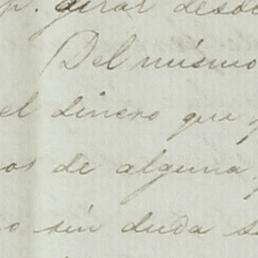 p. girar desde
Del mismo
el dinero que
os de alguna
o sin duda s